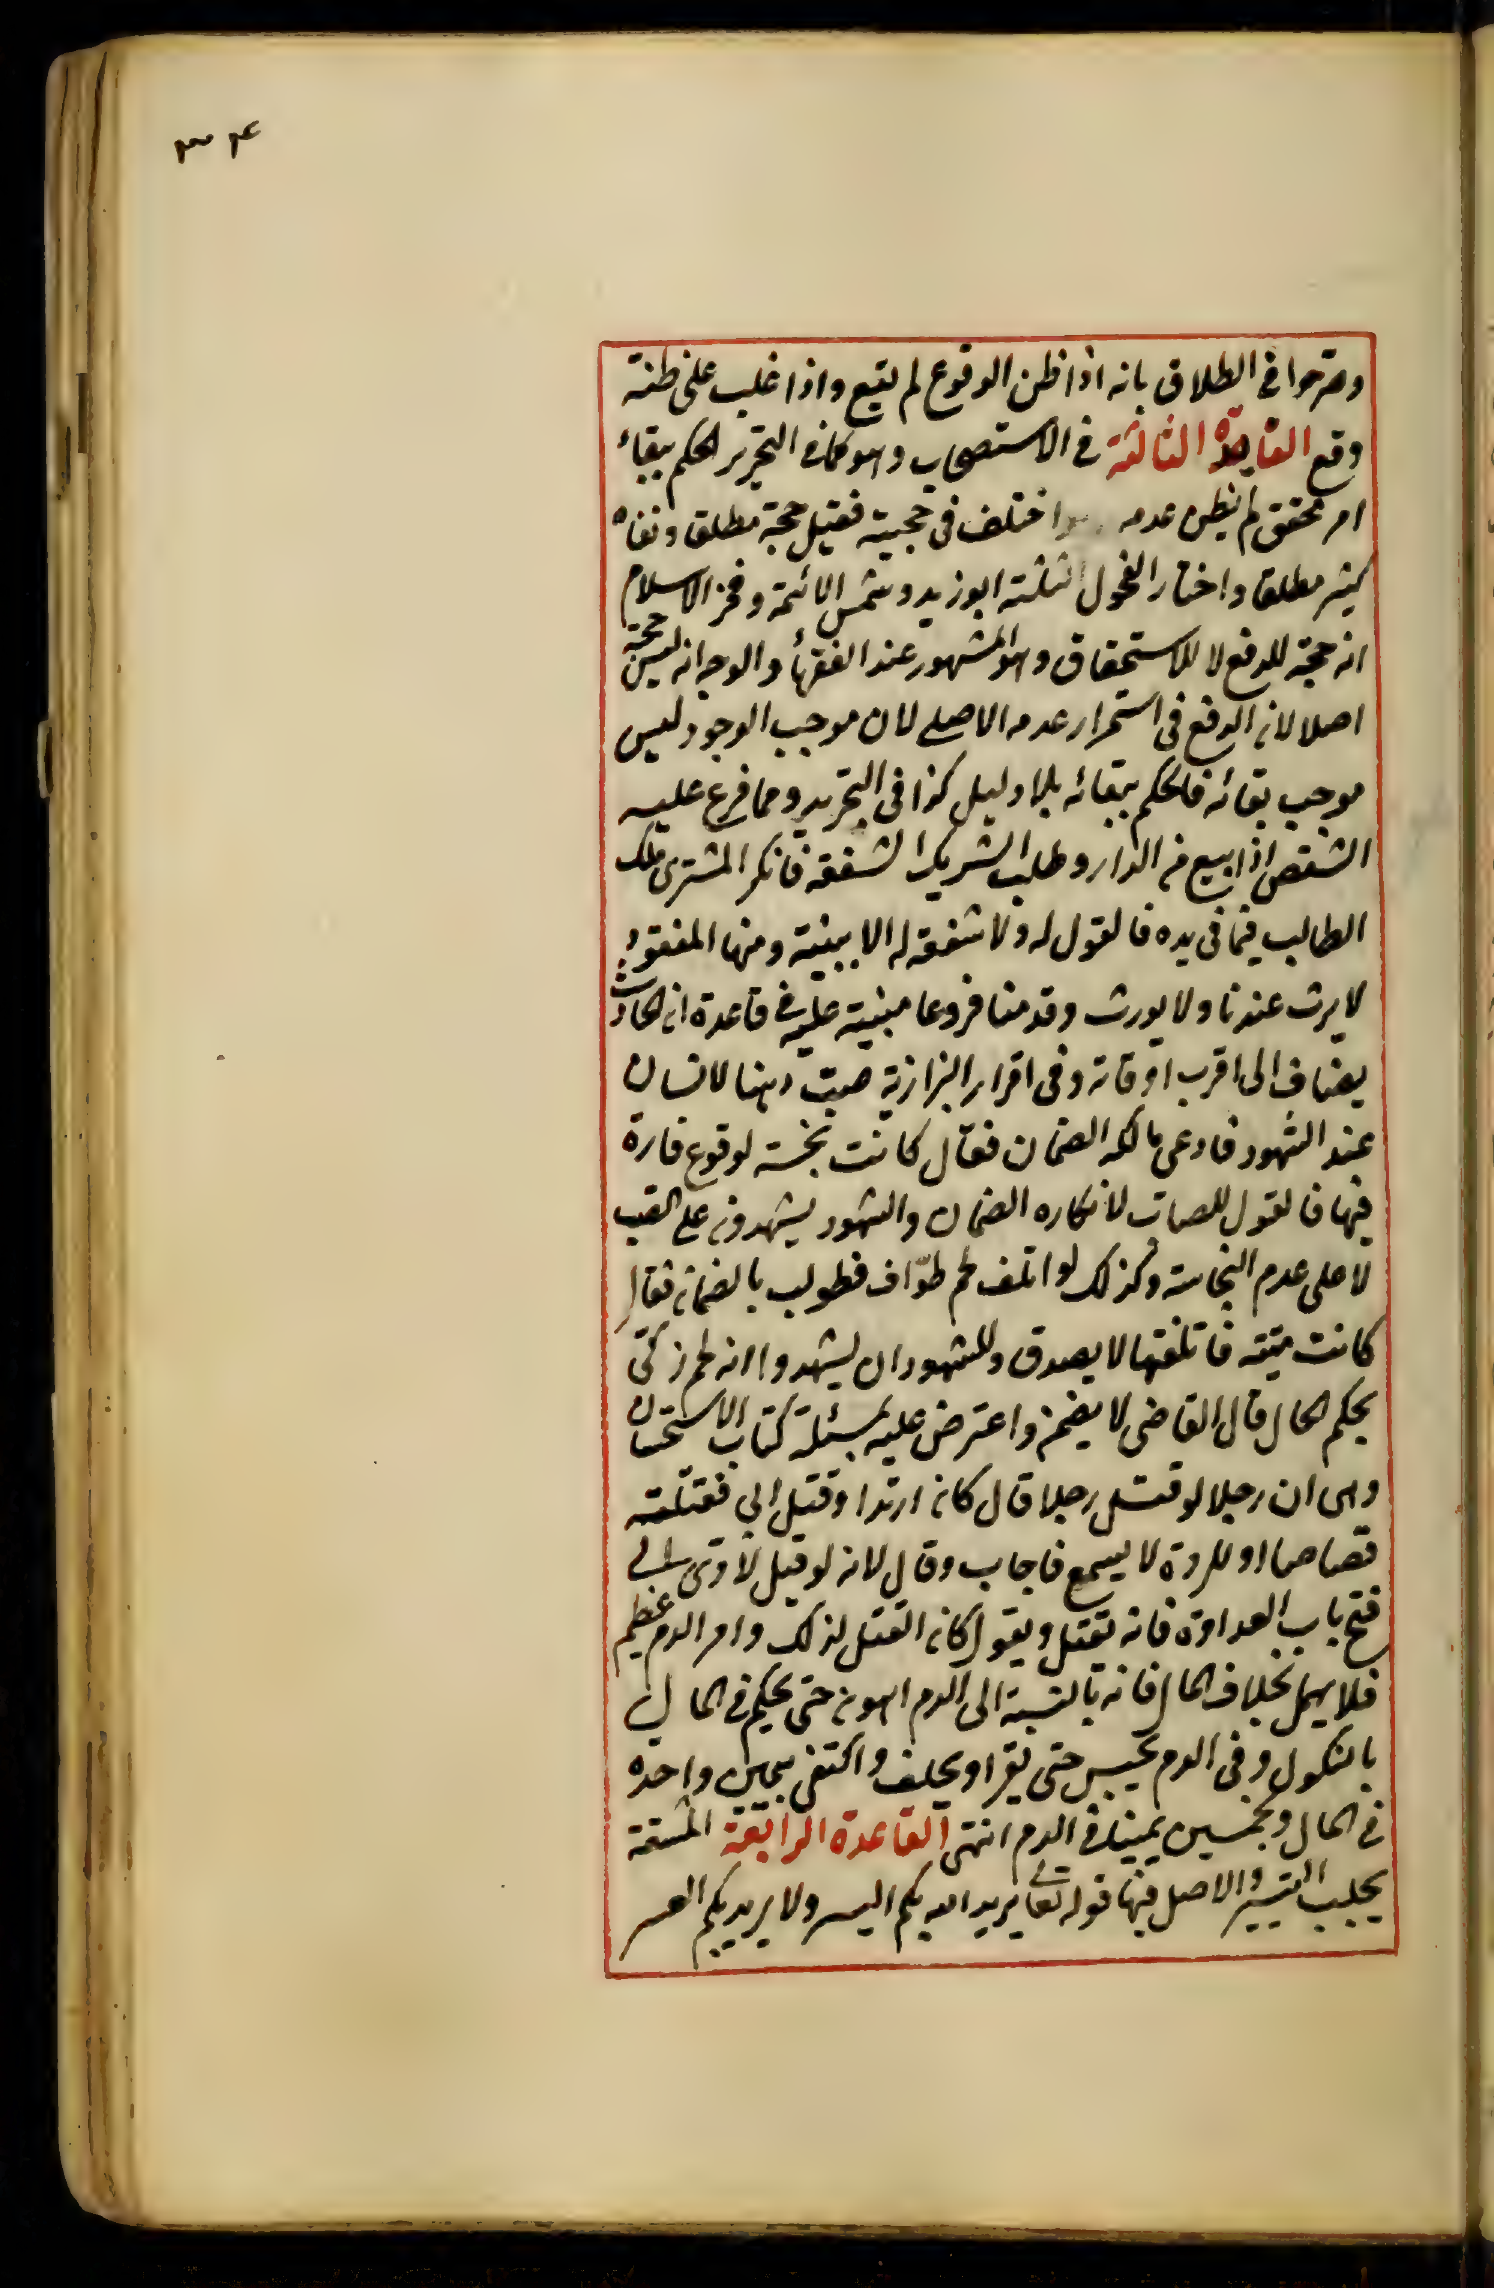 ٣٤
وصرحوا في الطلاق بانه اذا ظن الوقوع لم يقع واذا غلب على ظنه
وقع القاعدة الثالثة في الاستصحاب وهو كما في التحرير الحكم ببقاء
امر محقق لم يظن عدمه واختلف في حجيته فقيل حجة مطلقا ونفاه
كثير مطلقا واختار الفحول الثلثة ابو زيد وشمس الائمة وفخر الاسلام
انه حجة للدفع لا للاستحقاق وهو المشهور عند الفقهاء والوجه انه ليس حجة
اصلا لان الدفع في استمرار عدمه الاصلي لان موجب الوجود ليس
موجب بقائه فالحكم ببقائه بلا دليل كذا في التحرير ومما فرع عليه
الشقص اذا بيع من الدار وطلب الشريك الشفعة فانكر المشتري ملك
الطالب فيما في يده فالقول له ولا شفعة له الا ببينة ومنها المفقود
لا يرث عندنا ولا يورث وقدمنا فروعا مبنية عليه في قاعدة ان الحادث
يضاف الى اقرب اوقاته وفي اقرار البزازية صبت دهنا لانسان
عند الشهود فادعى مالكه الضمان فقال كانت نجسة لوقوع فارة
فيها فالقول للصاب لانكاره الضمان والشهود يشهدون على الصب
لا على عدم النجاسة وكذلك لو اتلف لحم طواف فطولب بالضمان فقال
كانت ميتة فاتلفتها لا يصدق وللشهود ان يشهدوا انه لحم زكي
بحكم الحال قال القاضي لا يضمن واعترض عليه بمسئلة كتاب الاستحسان
وهي ان رجلا لو قتل رجلا قال كان ارتد او قتل ابي فقتلته
قصاصا او للردة لا يسمع فاجاب وقال لانه لو قبل لأدى الى
فتح باب العداوة فانه يقتل ويقول كان القتل لذلك وامر الدم عظيم
فلا يهمل بخلاف المال فانه بالنسبة الى الدم اهون حتى يحكم في المال
بالنكول وفي الدم يحبس حتى يقر او يحلف واكتفى بيمين واحدة
في المال وبخمسين يمينا في الدم انتهى القاعدة الرابعة المشقة
يجلب التيسير والاصل فيها قوله تعالى يريد الله بكم اليسر ولا يريد بكم العسر